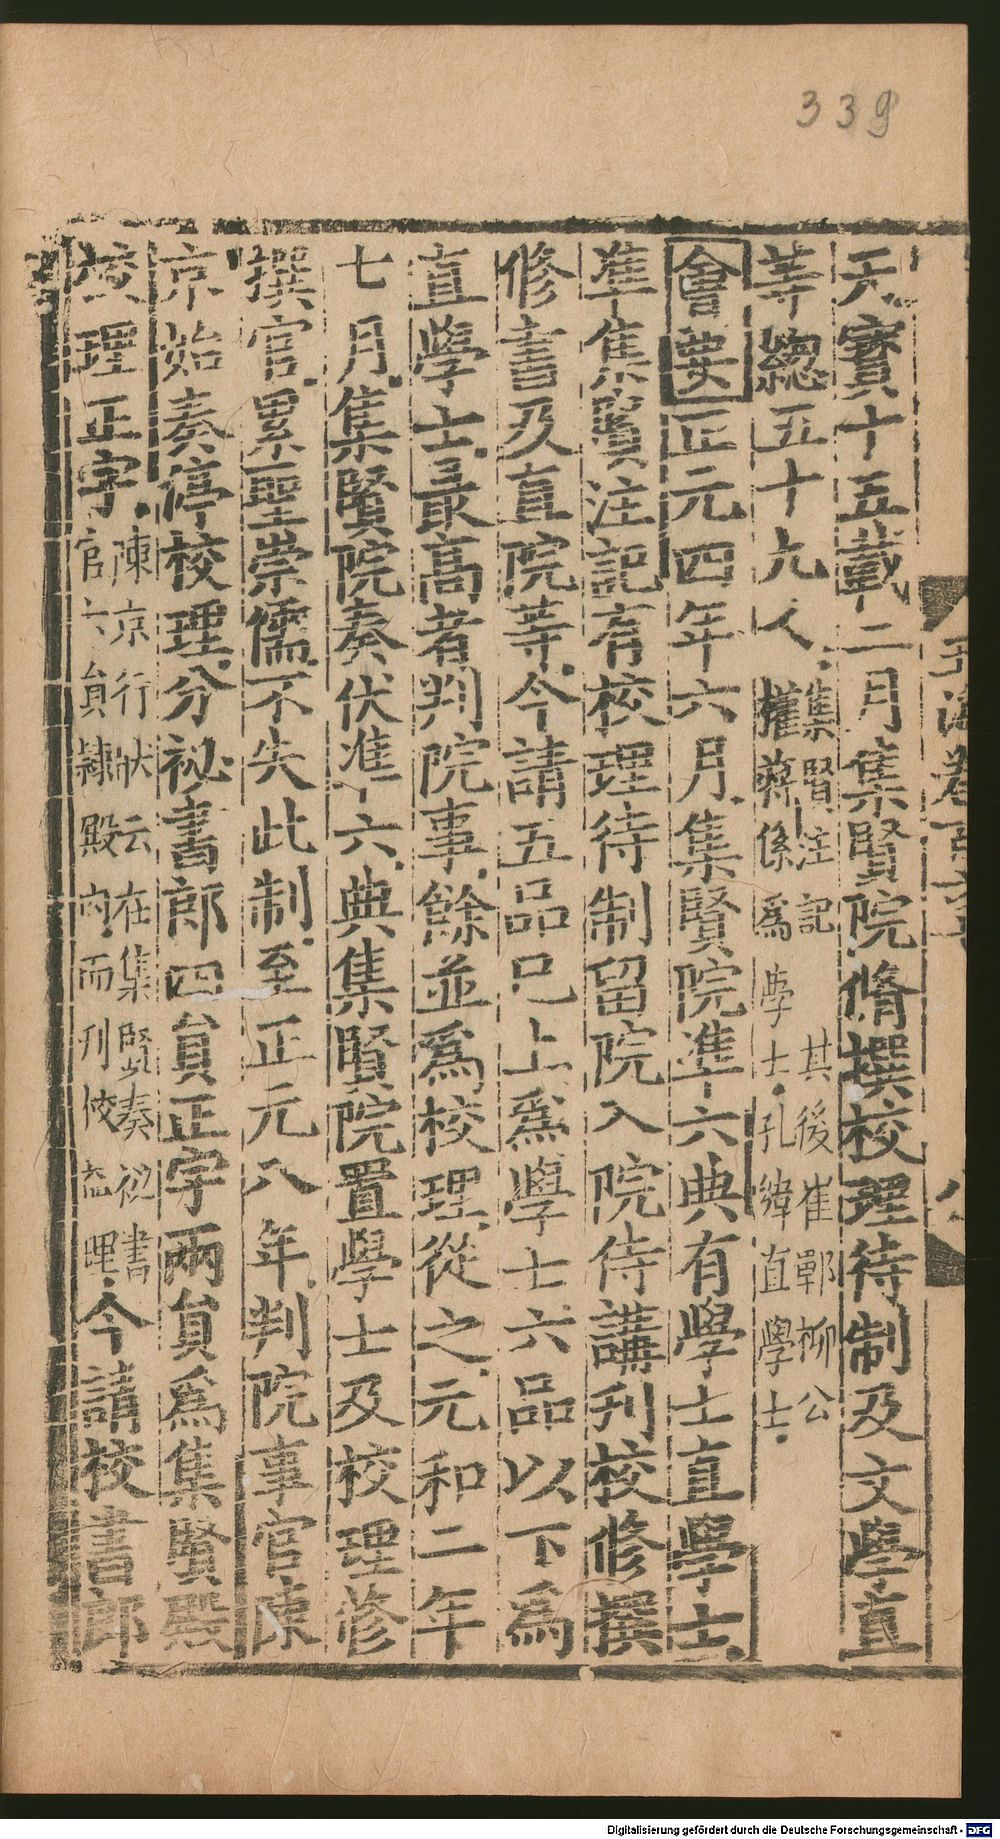 339
天寶十五載二月集賢院脩撰校理待制及文學直
等總五十九人集賢注記其後崔鄲柳公權蔣係爲學士孔緯直學士
會要正元四年六月集賢院準六典有學士直學士
準集賢注記有校理待制留院入院侍講刊校修撰
修書及直院等今請五品已上爲學士六品以下爲
直學士最高者判院事餘並爲校理從之元和二年
七月集賢院奏伏準六典集賢院置學士及校理修
撰官累聖崇儒不失此制至正元八年判院事官陳
京始奏停校理分祕書郎四員正字兩員爲集賢殿
校理正字陳京行狀云在集賢奏祕書官六員隸殿內而刊校益理今請校書郎
Digitalisierung gefördert durch die Deutsche Forschungsgemeinschaft - DFG